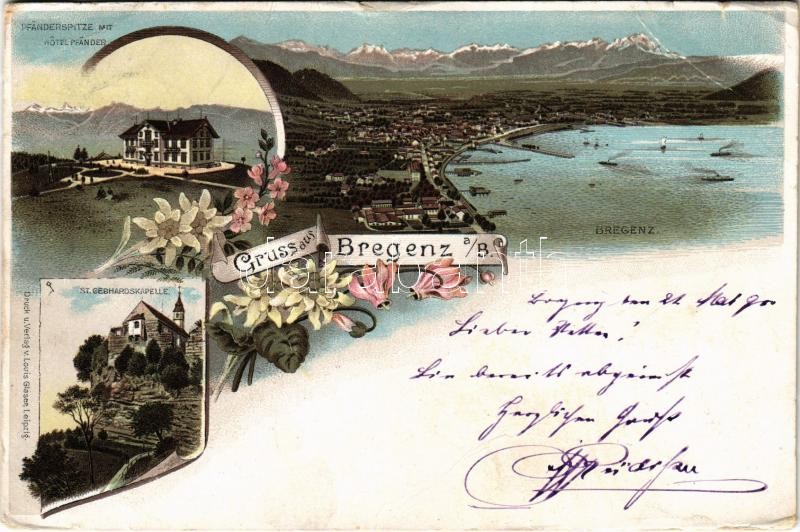 PFÄNDERSPITZE MIT
HÔTEL PFÄNDER.
BREGENZ.
Gruss aus Bregenz a/B.
ST. GEBHARDSKAPELLE.
Druck u. Verlag v. Louis Glaser, Leipzig.
den 21.
Lieber
Bin bereits abgereist
Herzlichen Gruß